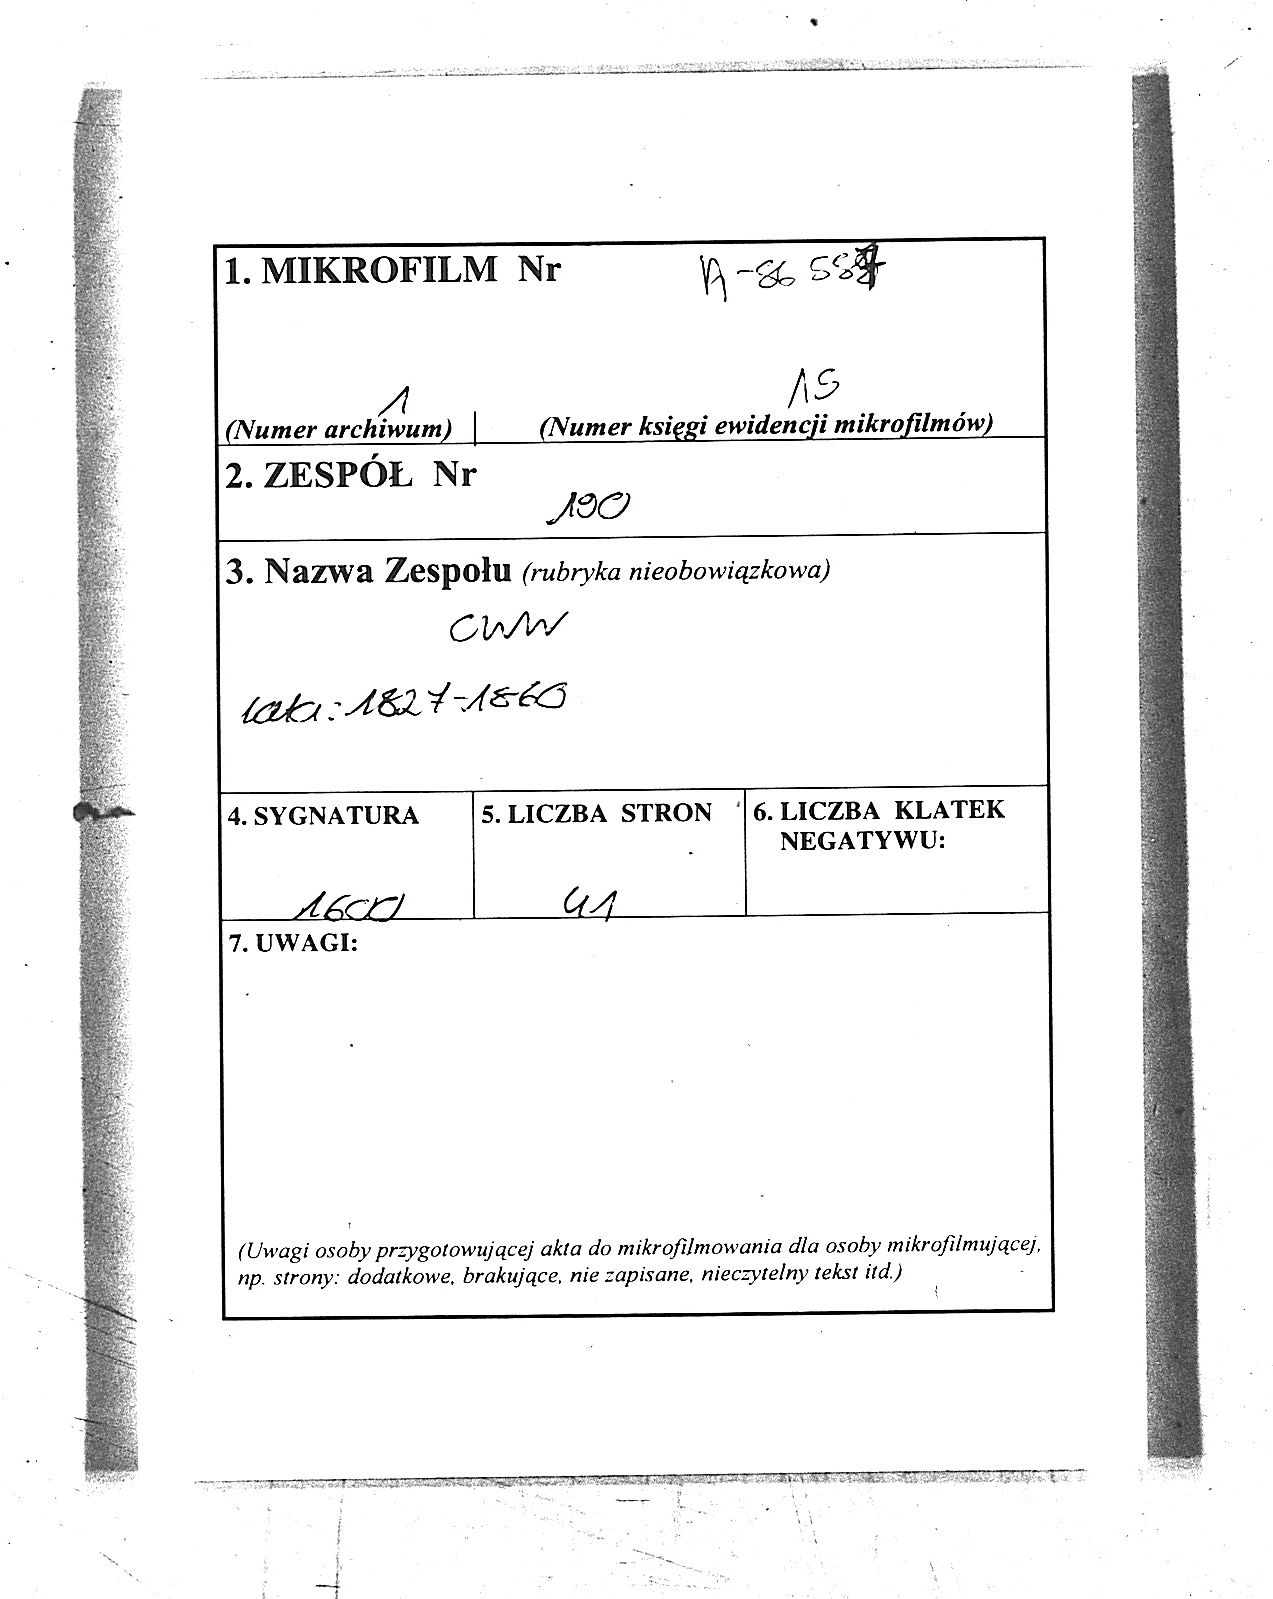 1. MIKROFILM Nr A-86 587
1 15
(Numer archiwum) | (Numer księgi ewidencji mikrofilmów)
2. ZESPÓŁ Nr
190
3. Nazwa Zespołu (rubryka nieobowiązkowa)
CWW
lata: 1827-1860
4. SYGNATURA
1600
5. LICZBA STRON
41
6. LICZBA KLATEK
NEGATYWU:
7. UWAGI:
(Uwagi osoby przygotowującej akta do mikrofilmowania dla osoby mikrofilmującej,
np. strony: dodatkowe, brakujące, nie zapisane, nieczytelny tekst itd.)